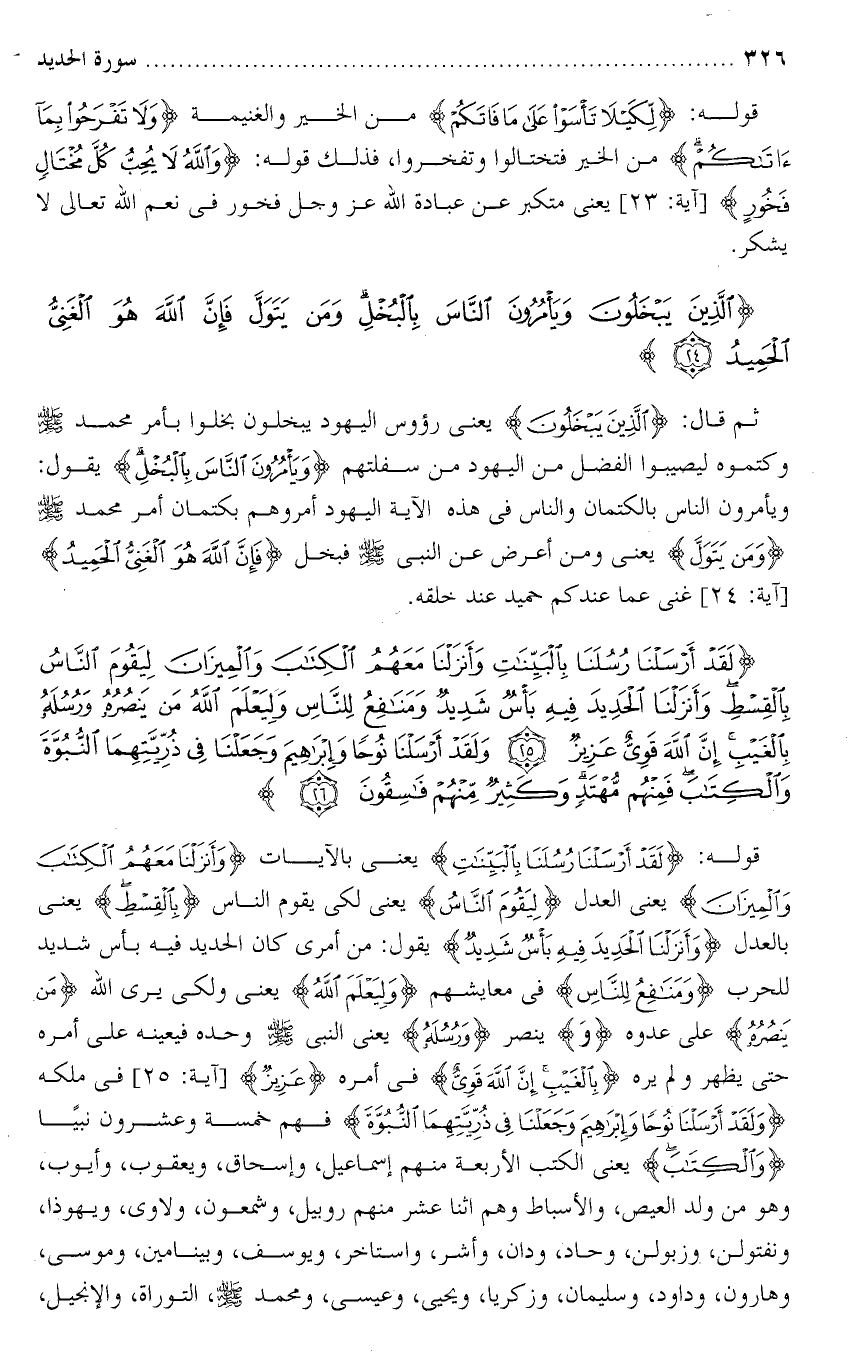 ٣٢٦ ........................................................................ سورة الحديد
قوله: ﴿لِّكَيْلَا تَأْسَوْا۟ عَلَىٰ مَا فَاتَكُمْ﴾ من الخير والغنيمة ﴿وَلَا تَفْرَحُوا۟ بِمَآ
ءَاتَىٰكُمْ ۗ﴾ من الخير فتختالوا وتفخروا، فذلك قوله: ﴿وَٱللَّهُ لَا يُحِبُّ كُلَّ مُخْتَالٍ
فَخُورٍ﴾ [آية: ٢٣] يعنى متكبر عن عبادة الله عز وجل فخور فى نعم الله تعالى لا
يشكر.
﴿ٱلَّذِينَ يَبْخَلُونَ وَيَأْمُرُونَ ٱلنَّاسَ بِٱلْبُخْلِ ۗ وَمَن يَتَوَلَّ فَإِنَّ ٱللَّهَ هُوَ ٱلْغَنِىُّ
ٱلْحَمِيدُ ٢٤ ﴾
ثم قال: ﴿ٱلَّذِينَ يَبْخَلُونَ﴾ يعنى رؤوس اليهود يبخلون بخلوا بأمر محمد ﷺ
وكتموه ليصيبوا الفضل من اليهود من سفلتهم ﴿وَيَأْمُرُونَ ٱلنَّاسَ بِٱلْبُخْلِ ۗ﴾ يقول:
ويأمرون الناس بالكتمان والناس فى هذه الآية اليهود أمروهم بكتمان أمر محمد ﷺ
﴿وَمَن يَتَوَلَّ﴾ يعنى ومن أعرض عن النبى ﷺ فبخل ﴿فَإِنَّ ٱللَّهَ هُوَ ٱلْغَنِىُّ ٱلْحَمِيدُ﴾
[آية: ٢٤] غنى عما عندكم حميد عند خلقه.
﴿لَقَدْ أَرْسَلْنَا رُسُلَنَا بِٱلْبَيِّنَٰتِ وَأَنزَلْنَا مَعَهُمُ ٱلْكِتَٰبَ وَٱلْمِيزَانَ لِيَقُومَ ٱلنَّاسُ
بِٱلْقِسْطِ ۖ وَأَنزَلْنَا ٱلْحَدِيدَ فِيهِ بَأْسٌ شَدِيدٌ وَمَنَٰفِعُ لِلنَّاسِ وَلِيَعْلَمَ ٱللَّهُ مَن يَنصُرُهُۥ وَرُسُلَهُۥ
بِٱلْغَيْبِ ۚ إِنَّ ٱللَّهَ قَوِىٌّ عَزِيزٌ ٢٥ وَلَقَدْ أَرْسَلْنَا نُوحًا وَإِبْرَٰهِيمَ وَجَعَلْنَا فِى ذُرِّيَّتِهِمَا ٱلنُّبُوَّةَ
وَٱلْكِتَٰبَ ۖ فَمِنْهُم مُّهْتَدٍ ۖ وَكَثِيرٌ مِّنْهُمْ فَٰسِقُونَ ٢٦ ﴾
قوله: ﴿لَقَدْ أَرْسَلْنَا رُسُلَنَا بِٱلْبَيِّنَٰتِ﴾ يعنى بالآيات ﴿وَأَنزَلْنَا مَعَهُمُ ٱلْكِتَٰبَ
وَٱلْمِيزَانَ﴾ يعنى العدل ﴿لِيَقُومَ ٱلنَّاسُ﴾ يعنى لكى يقوم الناس ﴿بِٱلْقِسْطِ ۖ﴾ يعنى
بالعدل ﴿وَأَنزَلْنَا ٱلْحَدِيدَ فِيهِ بَأْسٌ شَدِيدٌ﴾ يقول: من أمرى كان الحديد فيه بأس شديد
للحرب ﴿وَمَنَٰفِعُ لِلنَّاسِ﴾ فى معايشهم ﴿وَلِيَعْلَمَ ٱللَّهُ﴾ يعنى ولكى يرى الله ﴿مَن
يَنصُرُهُۥ﴾ على عدوه ﴿وَ﴾ ينصر ﴿وَرُسُلَهُۥ﴾ يعنى النبى ﷺ وحده فيعينه على أمره
حتى يظهر ولم يره ﴿بِٱلْغَيْبِ ۚ إِنَّ ٱللَّهَ قَوِىٌّ﴾ فى أمره ﴿عَزِيزٌ﴾ [آية: ٢٥] فى ملكه
﴿وَلَقَدْ أَرْسَلْنَا نُوحًا وَإِبْرَٰهِيمَ وَجَعَلْنَا فِى ذُرِّيَّتِهِمَا ٱلنُّبُوَّةَ﴾ فهم خمسة وعشرون نبيًا
﴿وَٱلْكِتَٰبَ ۖ﴾ يعنى الكتب الأربعة منهم إسماعيل، وإسحاق، ويعقوب، وأيوب،
وهو من ولد العيص، والأسباط وهم اثنا عشر منهم روبيل، وشمعون، ولاوى، ويهوذا،
ونفتولن، وزبولن، وحاد، ودان، وأشر، واستاخر، ويوسف، وبينامين، وموسى،
وهارون، وداود، وسليمان، وزكريا، ويحيى، وعيسى، ومحمد ﷺ، التوراة، والإنجيل،